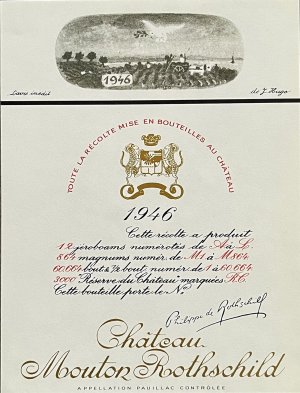 1946
Lavis inédit
de J. Hugo
TOUTE LA RÉCOLTE MISE EN BOUTEILLES AU CHÂTEAU
1946
Cette récolte a produit
12 jeroboams numérotés de A à L
864 magnums numér. de M1 à M864
60.664 bout. & ½ bout. numér. de 1 à 60.664
3000 "Réserve du Château" marquées R.C.
Cette bouteille porte le No
Philippe de Rothschild
Château
Mouton Rothschild
APPELLATION PAUILLAC CONTRÔLÉE